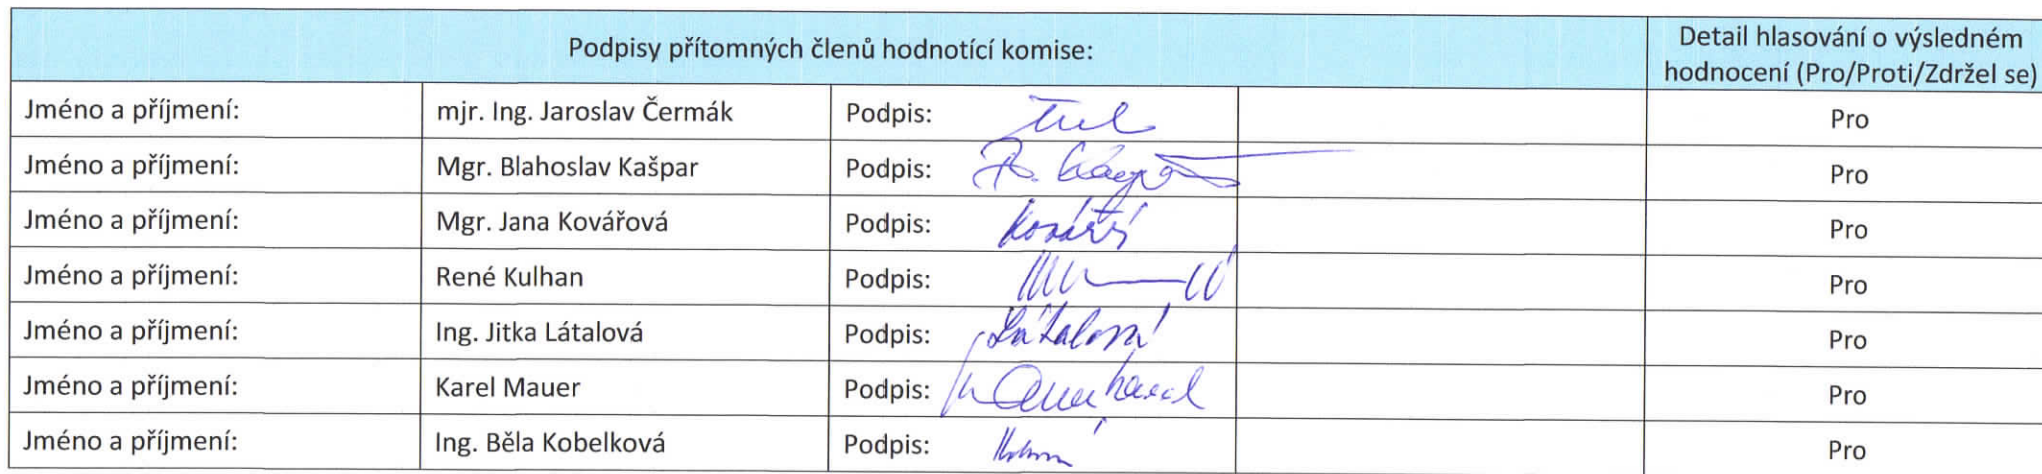 Podpisy přítomných členů hodnotící komise:
Detail hlasování o výsledném
hodnocení (Pro/Proti/Zdržel se)
Jméno a příjmení: mjr. Ing. Jaroslav Čermák Podpis: Pro
Jméno a příjmení: Mgr. Blahoslav Kašpar Podpis: Pro
Jméno a příjmení: Mgr. Jana Kovářová Podpis: Pro
Jméno a příjmení: René Kulhan Podpis: Pro
Jméno a příjmení: Ing. Jitka Látalová Podpis: Látalová Pro
Jméno a příjmení: Karel Mauer Podpis: Pro
Jméno a příjmení: Ing. Běla Kobelková Podpis: Pro